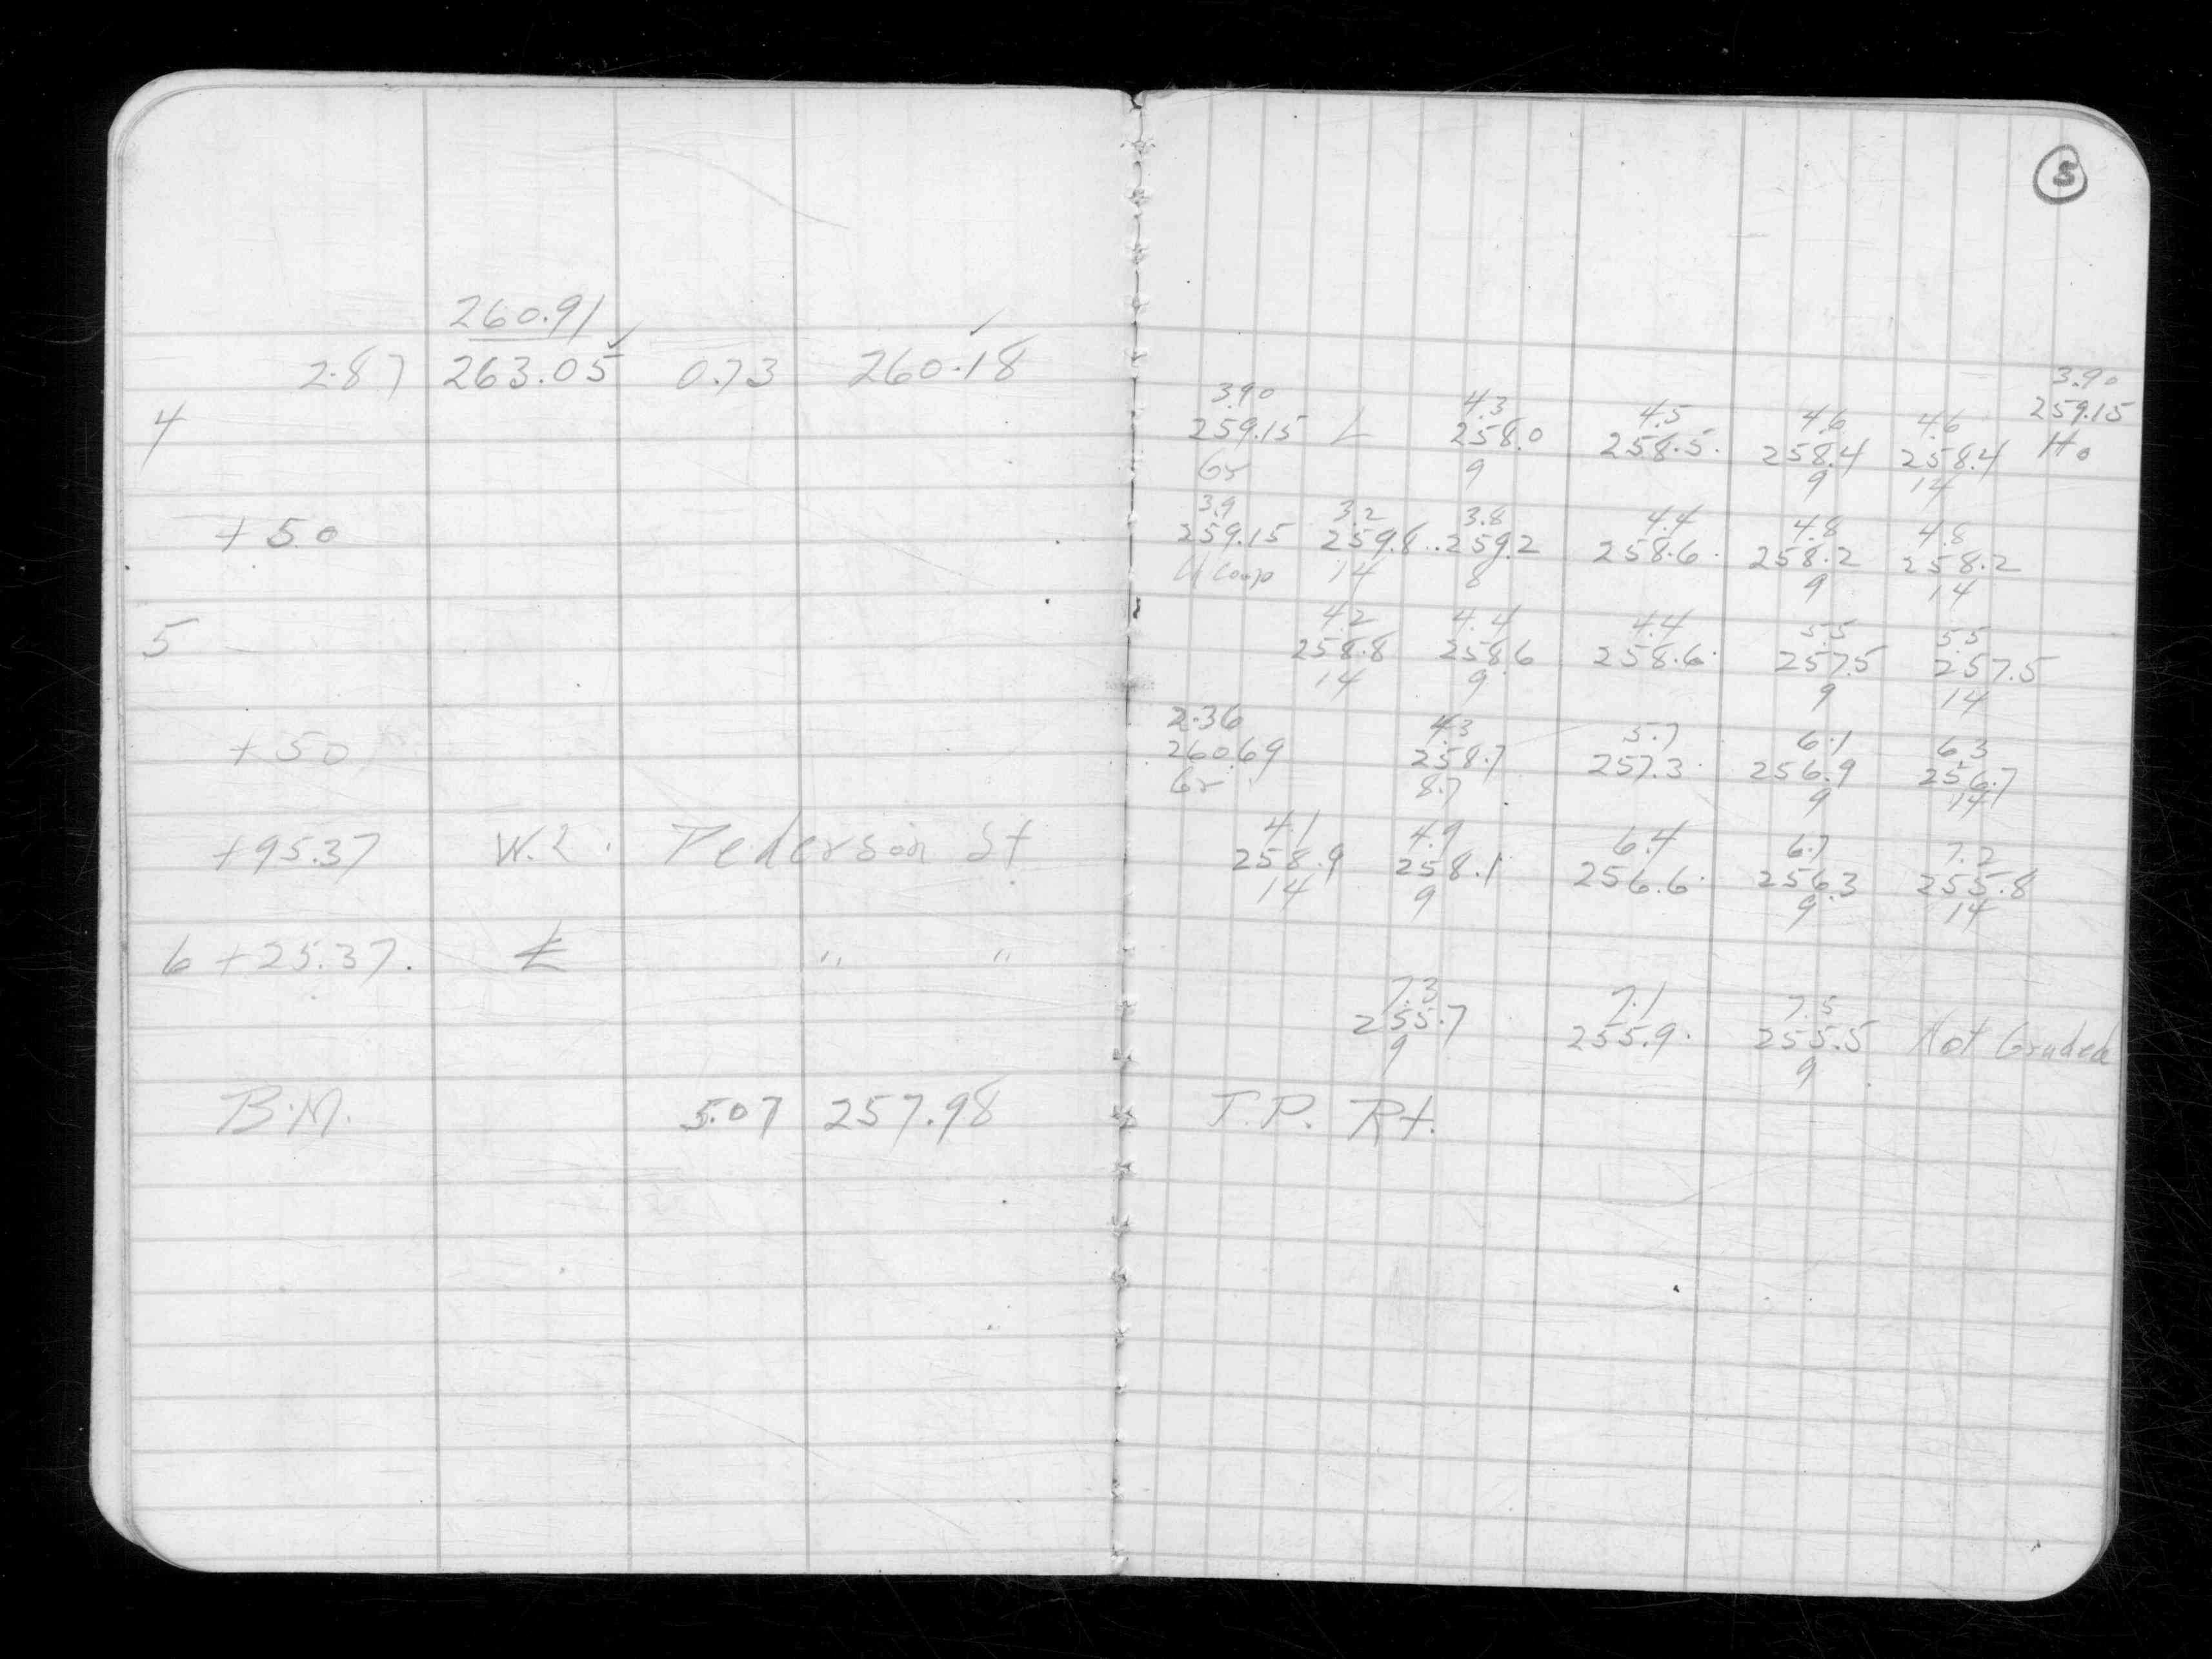 5
260.91
2.87 263.05 ✓ 0.73 260.18 ✓
4
3.90 4.3 4.5 4.6 4.6 3.90
259.15 L 258.0 258.5 258.4 258.4 259.15
Gr 9 9 14 Ho
+50
3.9 3.2 3.8 4.4 4.8 4.8
259.15 259.8 259.2 258.6 258.2 258.2
14 8 9 14
5
4.2 4.4 4.4 5.5 5.5
258.8 258.6 258.6 257.5 257.5
14 9 9 14
+50
2.36 4.3 5.7 6.1 6.3
260.69 258.7 257.3 256.9 256.7
Gr 8.7 9 14
+95.37 W.L. Pederson St
4.1 4.9 6.4 6.7 7.2
258.9 258.1 256.6 256.3 255.8
14 9 9 14
6 +25.37. ℄ " "
7.3 7.1 7.5
255.7 255.9 255.5 Not Graded
9 9
B.M. 5.07 257.98 T.P. Rt.